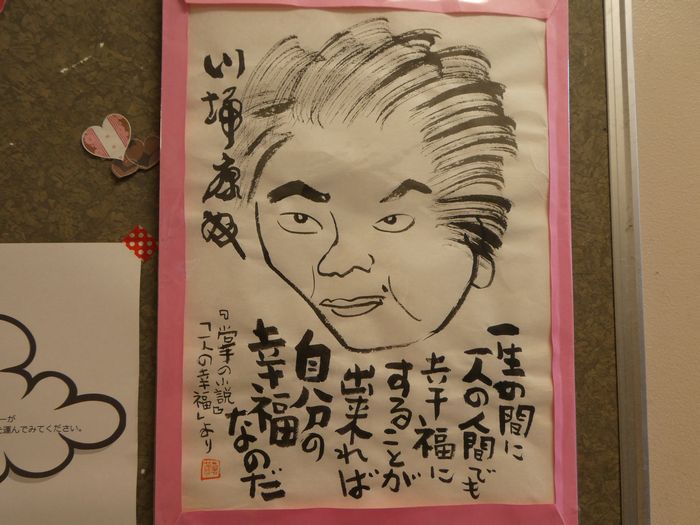 川端康成
一生の間に
一人の人間でも
幸福に
することが
出来れば
自分の
幸福なのだ
『掌の小説』
「一人の幸福」より
ーが
を運んでみてください。